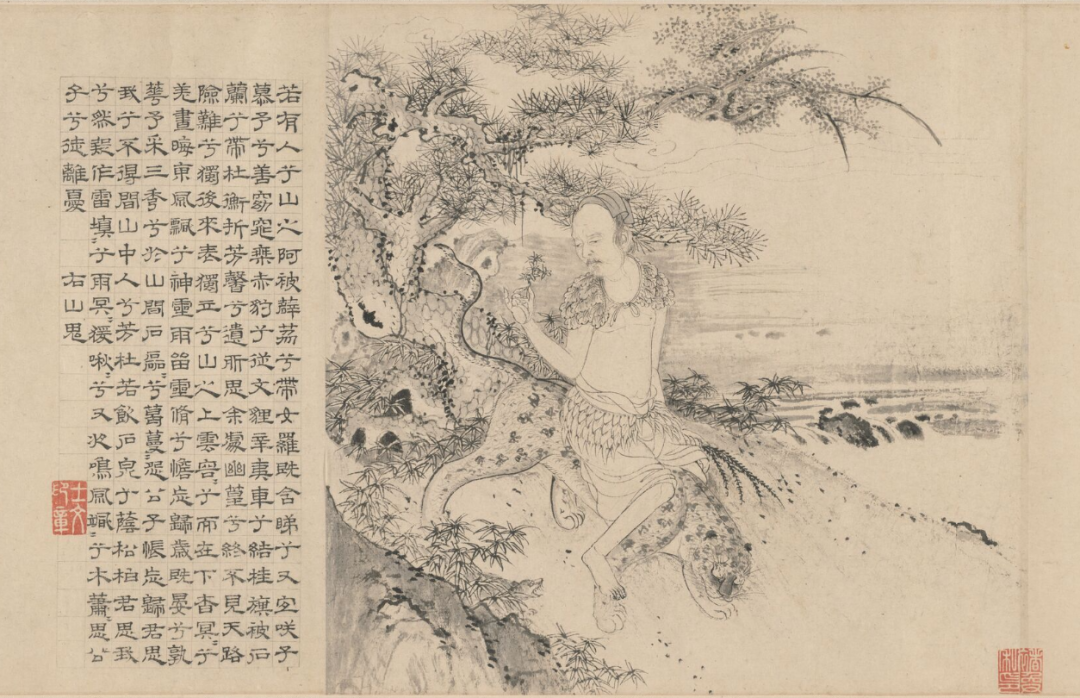 若有人兮山之阿被薜荔兮帶女羅既含睇兮又宜咲子
慕予兮善窈窕乗赤豹兮從文貍辛夷車兮結桂旗被石
蘭兮帶杜衡折芳馨兮遺所思余處幽篁兮終不見天路
險難兮獨後來表獨立兮山之上雲容〻兮而在下杳冥〻兮
羌晝晦東風飄兮神靈雨留靈脩兮憺忘歸歲既晏兮孰
華予采三秀兮於山間石磊〻兮葛蔓〻怨公子兮悵忘歸君思
我兮不得間山中人兮芳杜若飲石泉兮蔭松柏君思我
兮然疑作雷填〻兮雨冥〻猨啾〻兮又夜鳴風颯〻兮木蕭〻思公
子兮徒離憂 右山鬼
士文印章